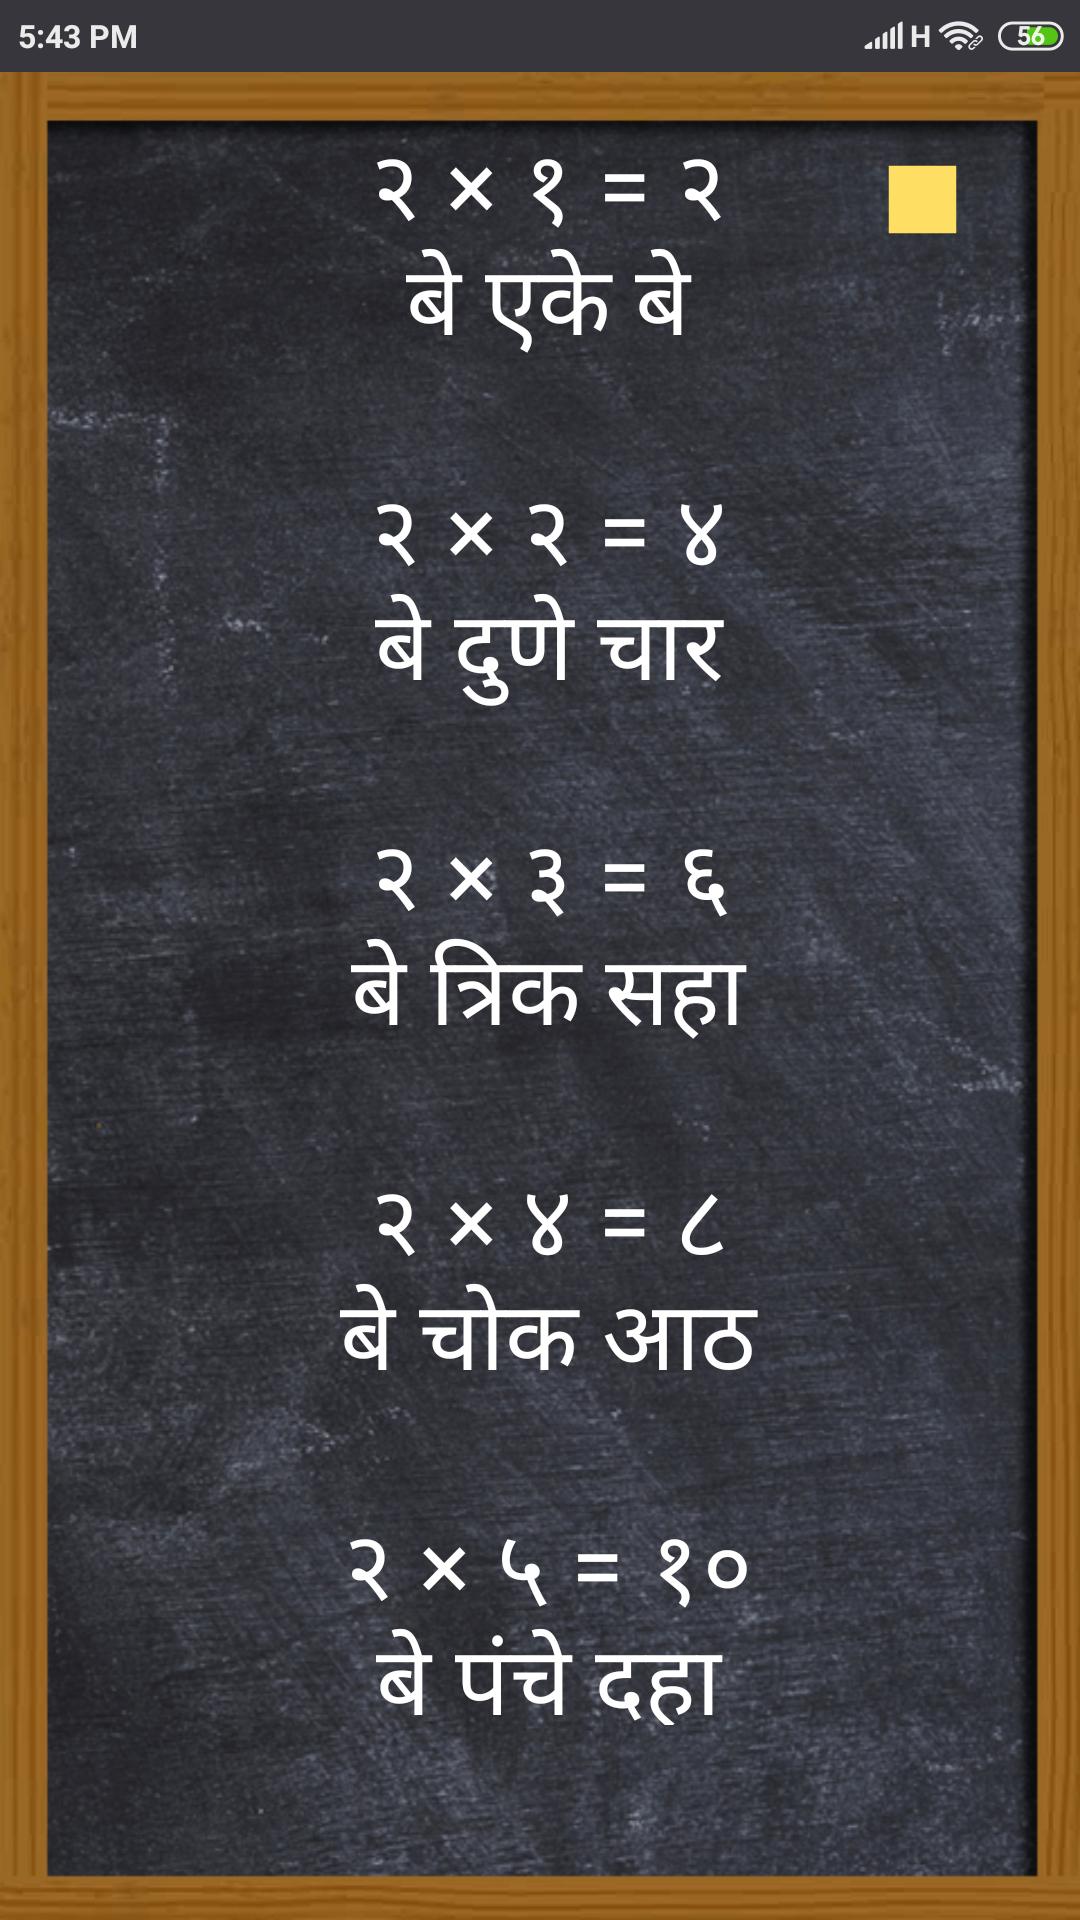 5:43 PM H 56
२ × १ = २
बे एके बे
२ × २ = ४
बे दुणे चार
२ × ३ = ६
बे त्रिक सहा
२ × ४ = ८
बे चोक आठ
२ × ५ = १०
बे पंचे दहा